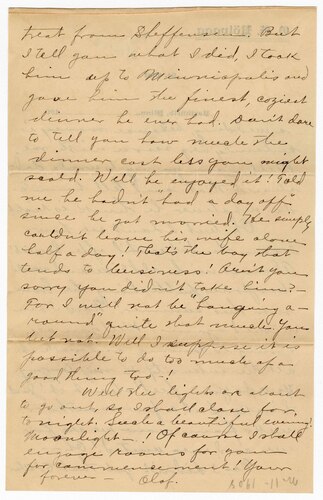 treat from Sheffer          But
I tell you what I did, I took
him up to Minniapolis and
gave him the finest, coziest
dinner he ever had. Don't dare
to tell you how much the
dinner cost lets you might
scold. Well he enjoyed it! Told
me he hadn't "had a day off"
since he got married. He simply
couldn't leave his wife alone
half a day! That's the boy that
tends to business! Aren't you
sorry you didn't take him?—
For I will not be "hanging a-
round" quite that much. You
bit not. Well I suppose it is
possible to do too much of a
good thing too—!
Well the lights are about
to go out, so I shall close for
to night. Such a beautiful evening!
Moonlight—! Of course I shall
engage rooms for you
for commencement! Your
forever—  Olaf.